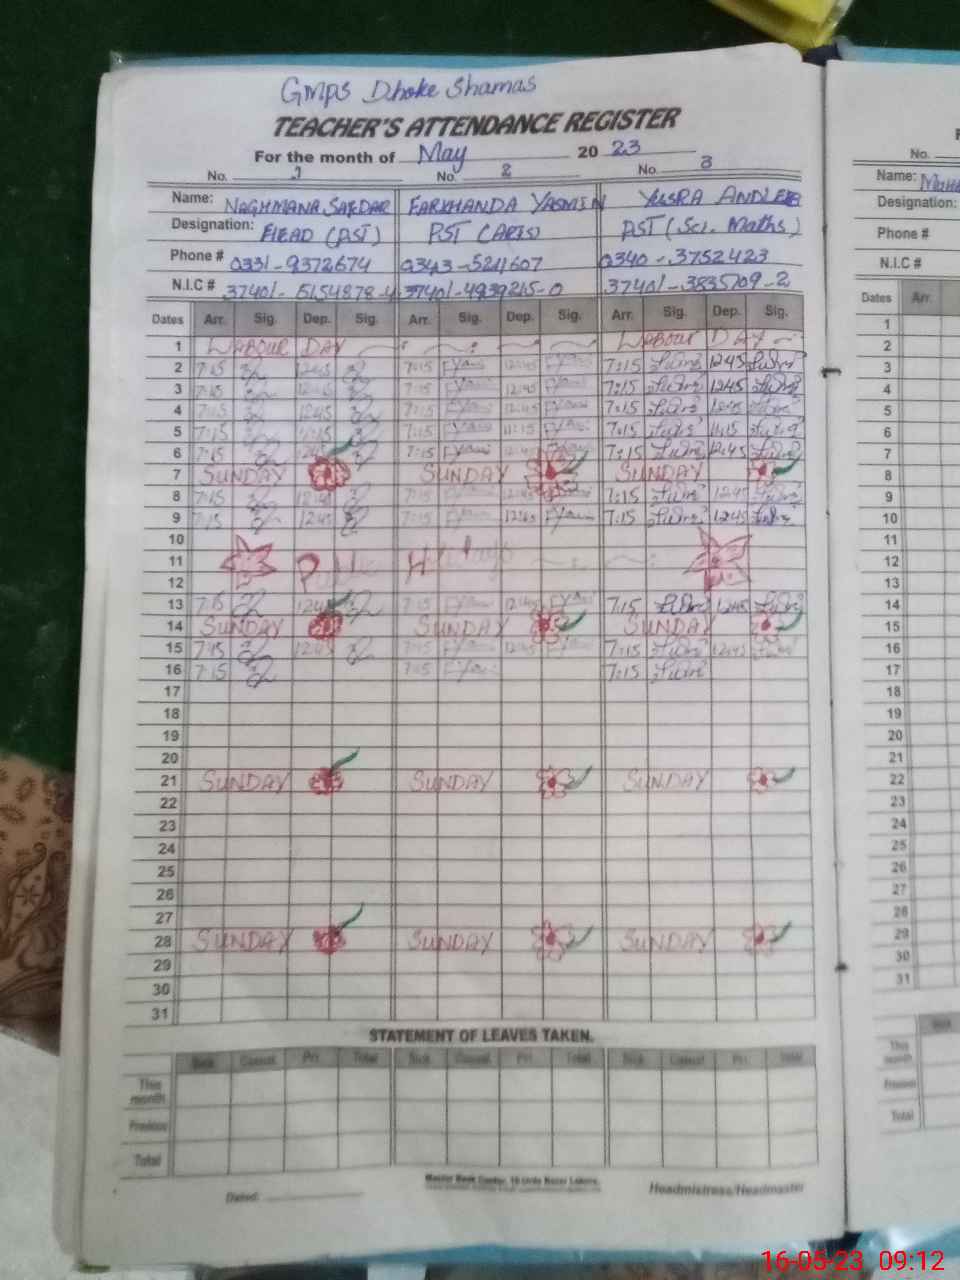 GMPS Dhoke Shamas
TEACHER'S ATTENDANCE REGISTER
For the month of May 2023
No. 1 No. 2 No. 3
Name: NAGHMANA SARDAR FARKHANDA YASMIN YUSRA ANDLEEB
Designation: HEAD (PST) PST (ARTS) PST (Sci. Maths)
Phone # 0331-9372674 0343-5211607 0340-3752423
N.I.C # 37401-5154878-4 37401-4939215-0 37401-3835709-2
Dates Arr. Sig. Dep. Sig. Arr. Sig. Dep. Sig. Arr. Sig. Dep. Sig.
1 LABOUR DAY LABOUR DAY
2 7:15 12:45 7:15 12:45 7:15 12:45
3 7:15 12:45 7:15 12:45 7:15 12:45
4 7:15 12:45 7:15 12:45 7:15 12:45
5 7:15 11:15 7:15 11:15 7:15 11:15
6 7:15 7:15 7:15 12:45
7 SUNDAY SUNDAY SUNDAY
8 7:15 12:45 7:15 12:45 7:15 12:45
9 7:15 12:45 7:15 12:45 7:15 12:45
10
11 Public Holidays
12
13 7:15 12:45 7:15 12:45 7:15 12:45
14 SUNDAY SUNDAY SUNDAY
15 7:15 12:45 7:15 12:45 7:15 12:45
16 7:15 7:15 7:15
17
18
19
20
21 SUNDAY SUNDAY SUNDAY
22
23
24
25
26
27
28 SUNDAY SUNDAY SUNDAY
29
30
31
STATEMENT OF LEAVES TAKEN.
Sick Casual Pri. Total Sick Casual Pri. Total Sick Casual Pri. Total
This month
Previous
Total
Dated:
Headmistress/Headmaster
No.
Name:
Designation:
Phone #
N.I.C #
Dates Arr.
1
2
3
4
5
6
7
8
9
10
11
12
13
14
15
16
17
18
19
20
21
22
23
24
25
26
27
28
29
30
31
This month
Total
16-05-23 09:12